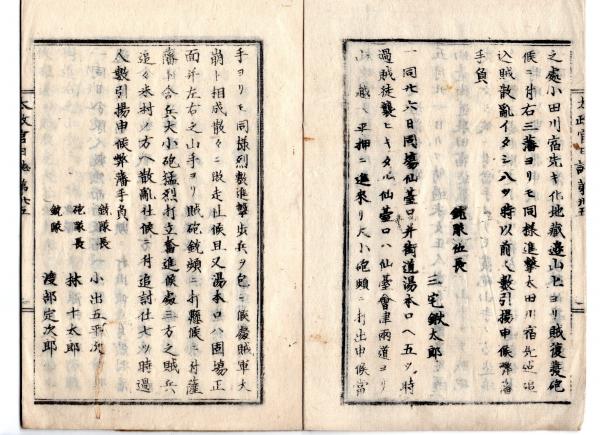 之處小田川宿先キ化地藏邊山上ヨリ賊復發砲
候ニ付右三藩ヨリモ同樣進擊太田川宿先迄追
込賊散亂イタシ八ツ時以前人數引揚申候弊藩
手負
銃隊伍長
三宅鍬太郎
一同廿六日同塲仙臺口并街道湯本口ヘ五ツ時
過賊徒襲ヒキタル仙臺口ハ仙臺會津兩道ヨリ
山越ヘ平押ニ進來リ大小砲頻ニ打出申候當
手ヨリモ同樣烈敷進擊步兵ヲ
崩ト相成散々ニ敗走止候且又湯本口ハ固塲正
面并左右之山手ヨリ賊砲銃頻ニ打懸候ニ付薩
藩ト合兵大小砲猛烈打立奮進候處三方之賊兵
追々米村ノ方ヘ散亂仕候ニ付追討仕七ツ時過
人數引揚申候弊藩手負
銃隊長
小出五
砲隊長
林十太郎
銃隊
渡部定次郎
太政官日誌第卅五